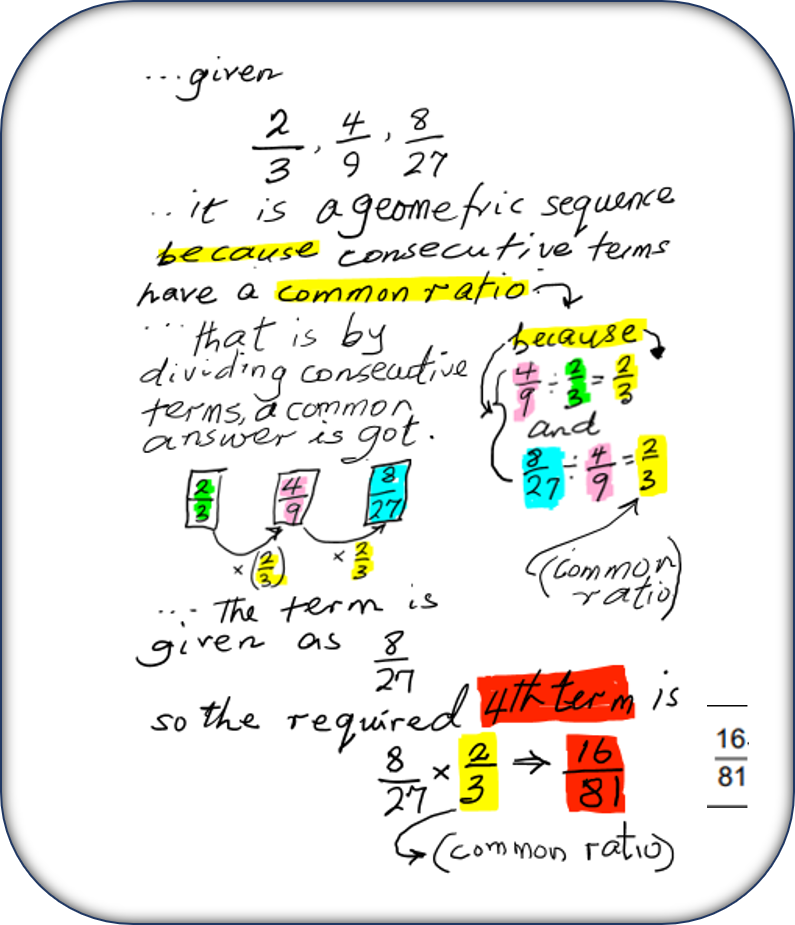 ...given
2/3, 4/9, 8/27
..it is a geometric sequence
because consecutive terms
have a common ratio
...that is by
dividing consecutive
terms, a common
answer is got.
because
4/9 ÷ 2/3 = 2/3
and
8/27 ÷ 4/9 = 2/3
(common
ratio)
2/3 4/9 8/27
×(2/3) × 2/3
... The term is
given as 8/27
so the required 4th term is
8/27 × 2/3 ⇒ 16/81
(common ratio)
16
81